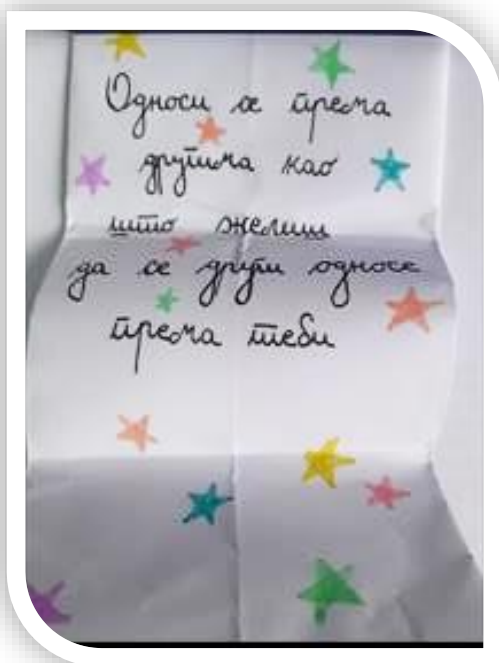 Односи се према
другима као
што желиш
да се други односе
према теби